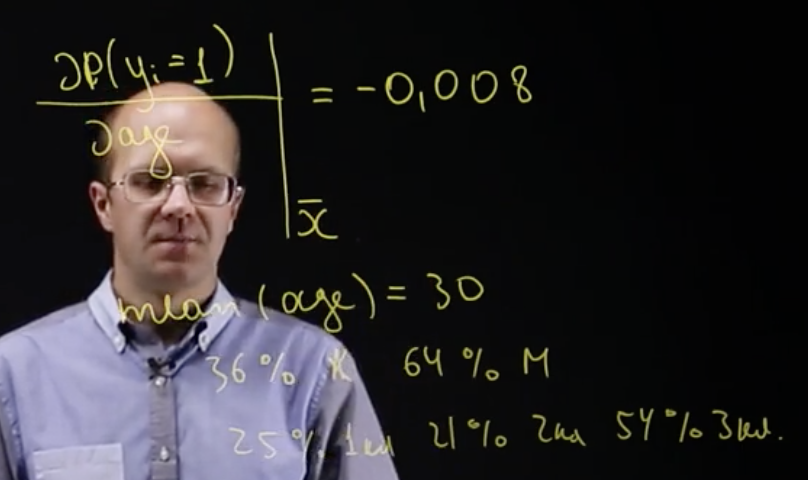 ∂P(yᵢ=1)
∂age
= -0,008
x̄
mean (age) = 30
36% Ж 64% М
25% 1кл 21% 2кл 54% 3кл.